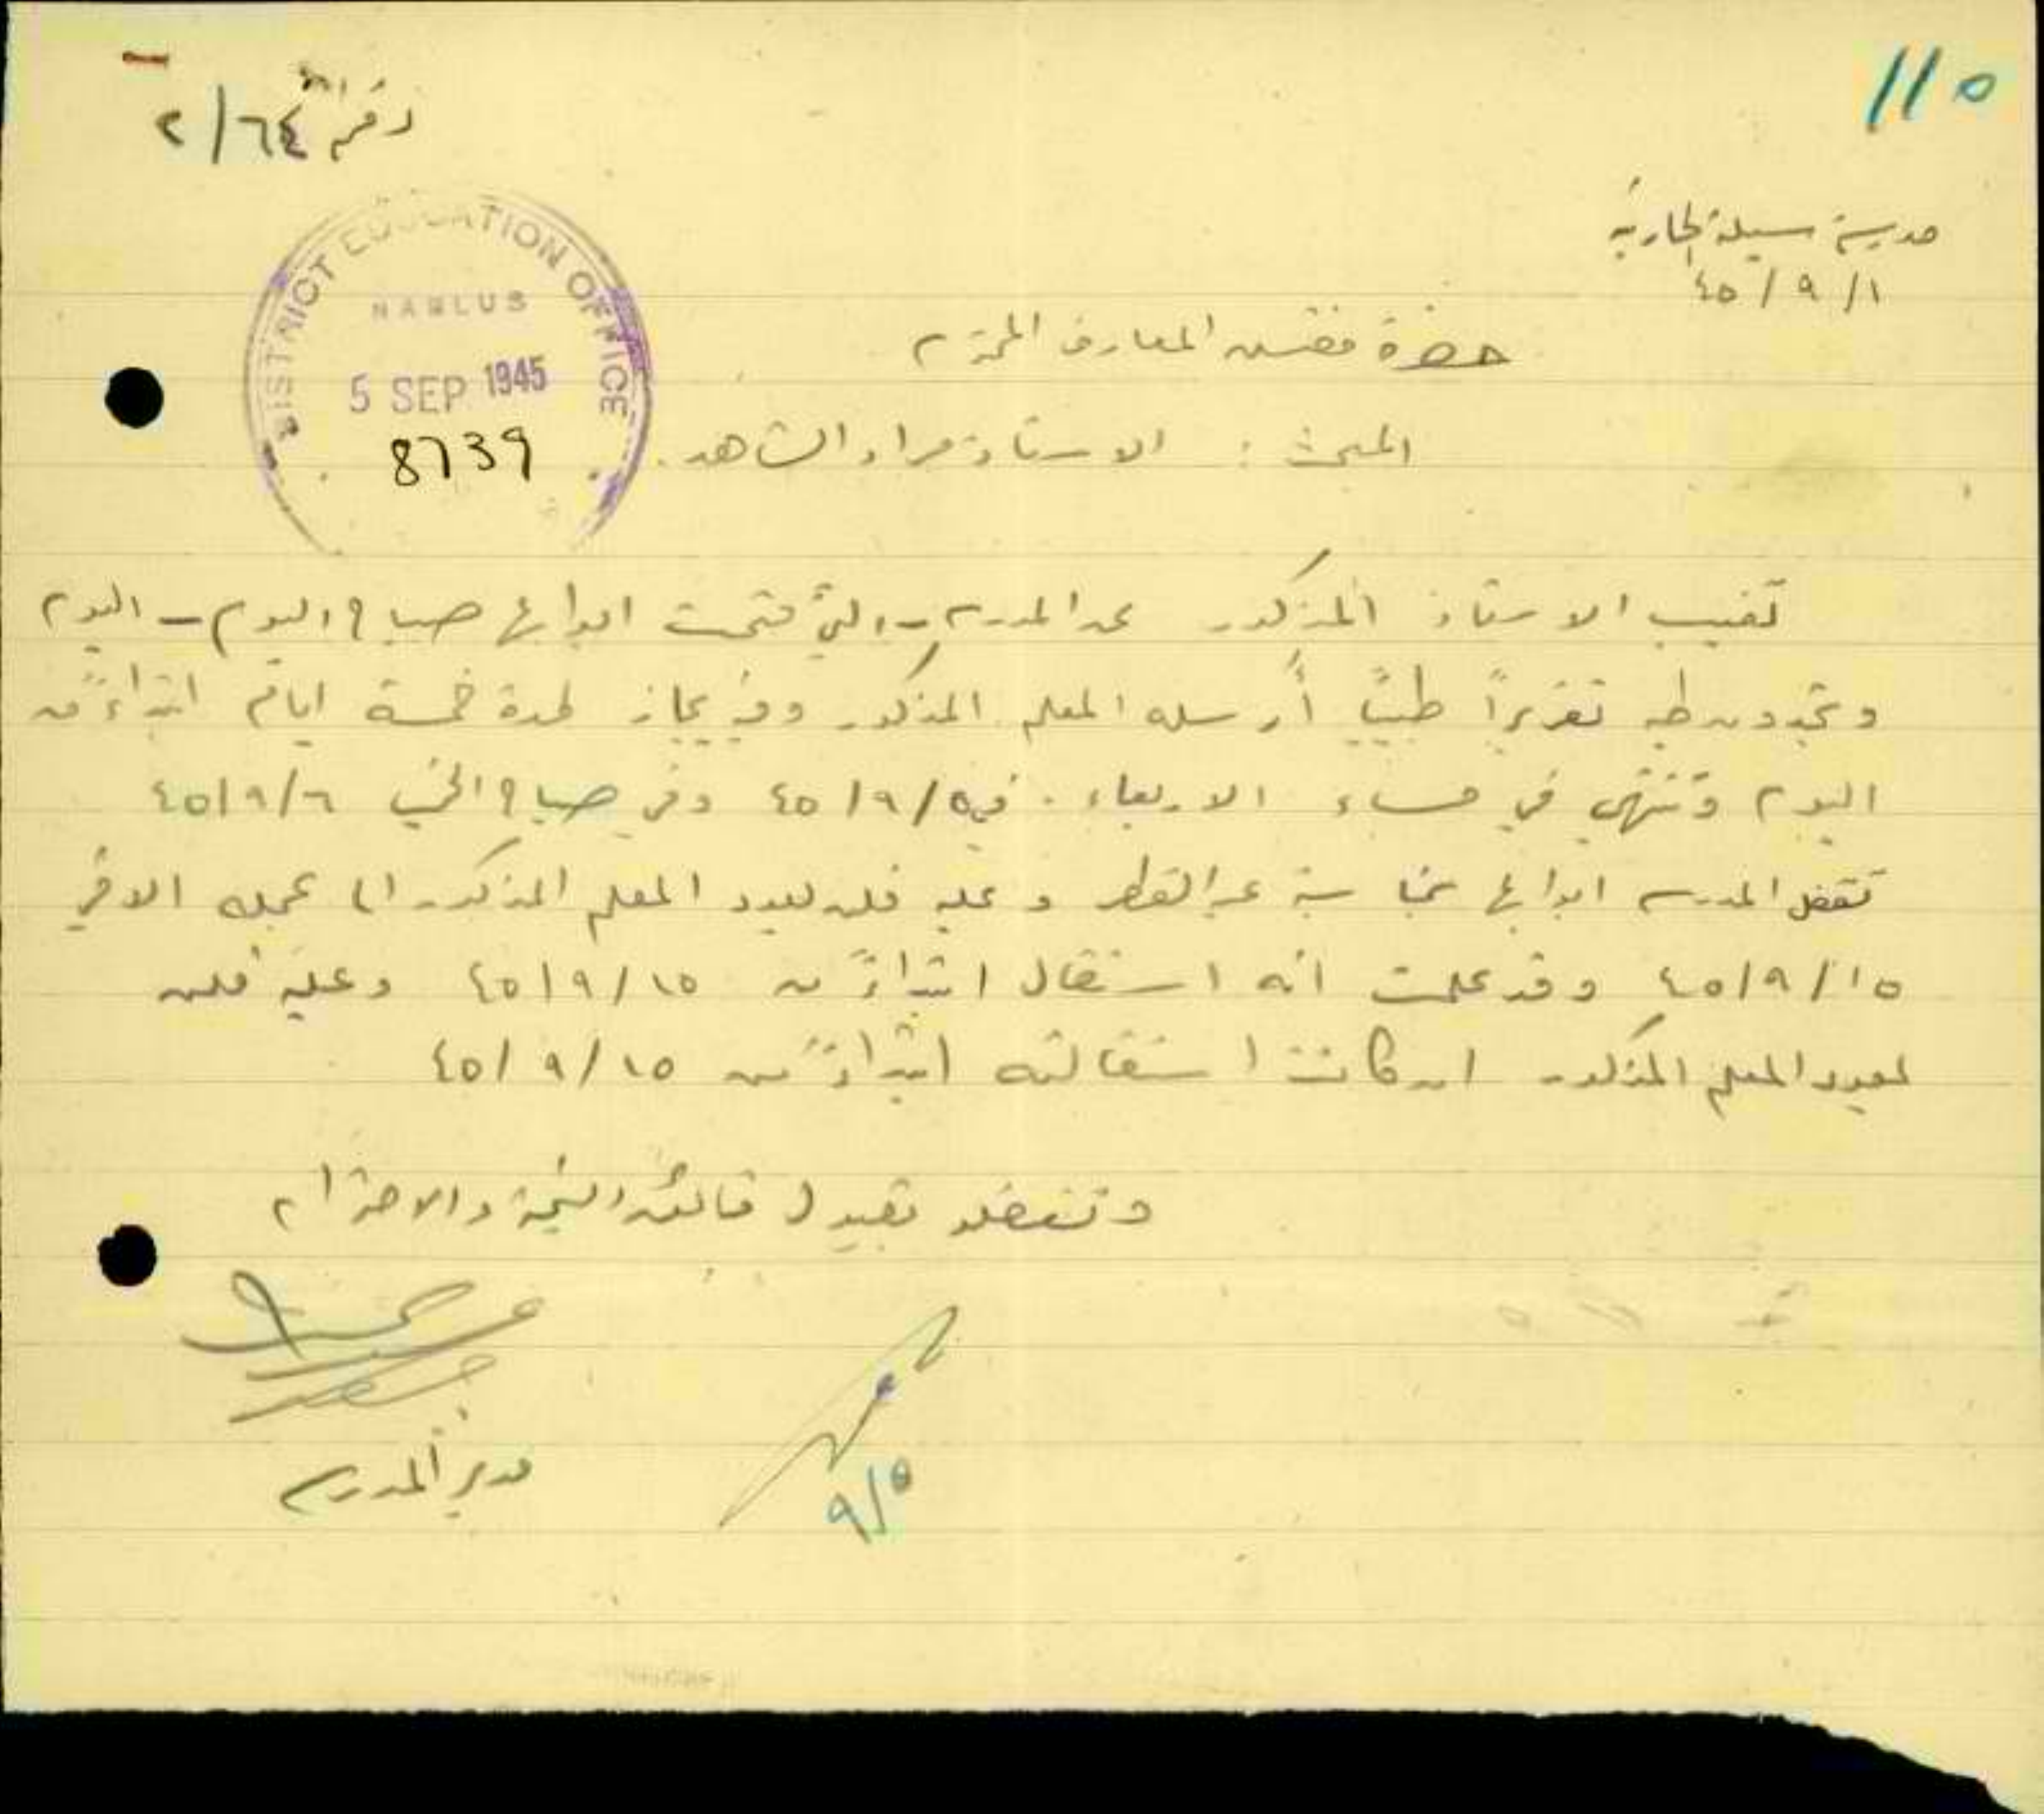 ١١٥
رقم ٢/٦٤
مدرسة سيلة الحارثية
٤٥/٩/١
DISTRICT EDUCATION OFFICE
NABLUS
5 SEP 1945
8739
حضرة مفتش المعارف المحترم
المبحث : الاستاذ مراد الشاهد.
تغيب الاستاذ المذكور عن المدرسة - التي فتحت ابوابها صباح اليوم - اليوم
وتجدون طيه تقريراً طبياً أرسله المعلم المذكور وفيه يجاز لمدة خمسة ايام ابتداءً من
اليوم وتنتهي في مساء الاربعاء في ٤٥/٩/٥ وفي صباح الخميس ٤٥/٩/٦
تقفل المدرسة ابوابها بمناسبة عيد الفطر وعليه فلن يعود المعلم المذكور الى عمله الا في
٤٥/٩/١٥ وقد علمت انه استقال ابتداءً من ٤٥/٩/١٥ وعليه فلن
يعود المعلم المذكور ان كانت استقالته ابتداءً من ٤٥/٩/١٥
وتفضلوا بقبول فائق التحية والاحترام
مدير المدرسة
٩/٥